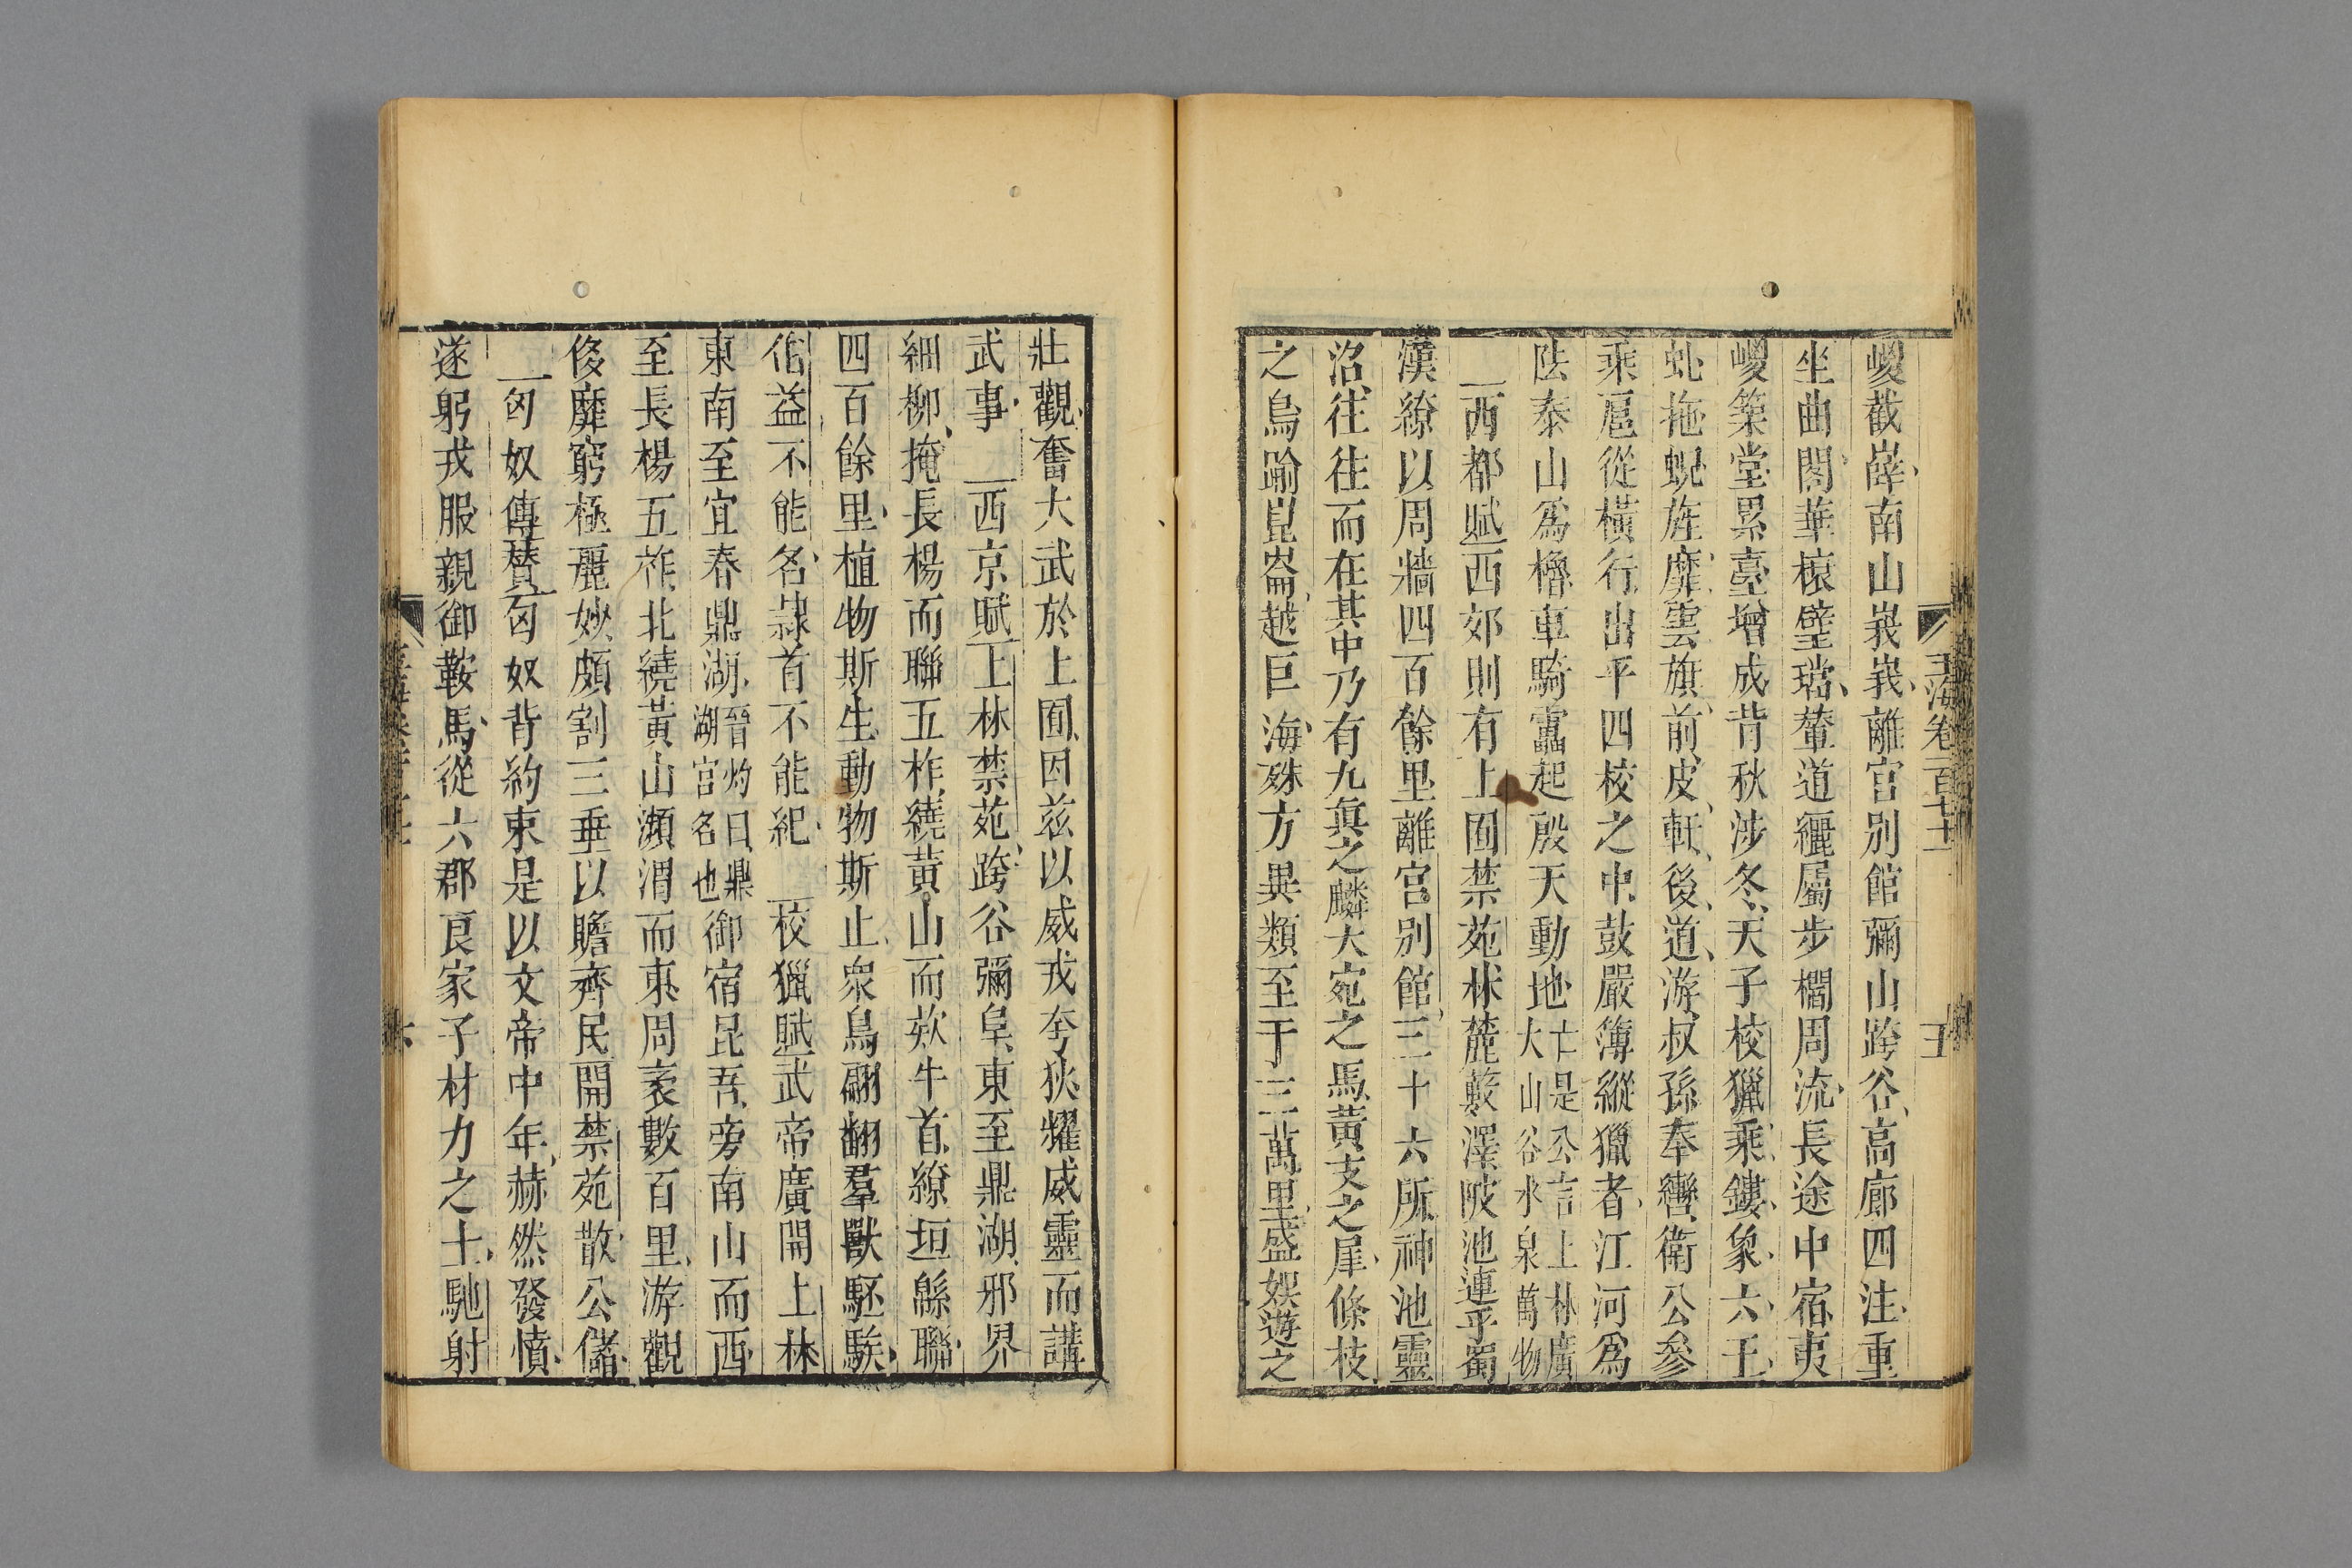 玉海卷一百七十一 五
嵕嶻嶭南山峩峩離宮別館彌山跨谷高廊四注重
坐曲閣華榱璧璫輦道纚屬步櫩周流長途中宿夷
嵕築堂累臺增成背秋涉冬天子校獵乘鏤象六玉
虬拖蜺旌靡雲旗前皮軒後道游叔孫奉轡衛公參
乘扈從橫行出乎四校之中鼓嚴簿縱獵者江河爲
阹泰山爲櫓車騎靁起殷天動地亡是公言上林廣大山谷水泉萬物
西都賦西郊則有上囿禁苑林麓藪澤陂池連乎蜀
漢繚以周牆四百餘里離宮別館三十六所神池靈
沼往往而在其中乃有九真之麟大宛之馬黃支之犀條枝
之鳥踰崑崙越巨海殊方異類至于三萬里盛娛遊之
壯觀奮大武於上囿因茲以威戎夸狄燿威靈而講
武事 西京賦上林禁苑跨谷彌阜東至鼎湖邪界
細柳掩長楊而聯五柞繞黃山而欵牛首繚垣緜聯
四百餘里植物斯生動物斯止衆鳥翩翻羣獸駓騃
伯益不能名隸首不能紀 校獵賦武帝廣開上林
東南至宜春鼎湖晉灼曰鼎湖宮名也御宿昆吾旁南山而西
至長楊五柞北繞黃山瀕渭而東周袤數百里游觀
侈靡窮極麗妙頗割三垂以贍齊民開禁苑散公儲
匈奴傳贊匈奴背約束是以文帝中年赫然發憤
遂躬戎服親御鞍馬從六郡良家子材力之士馳射
六